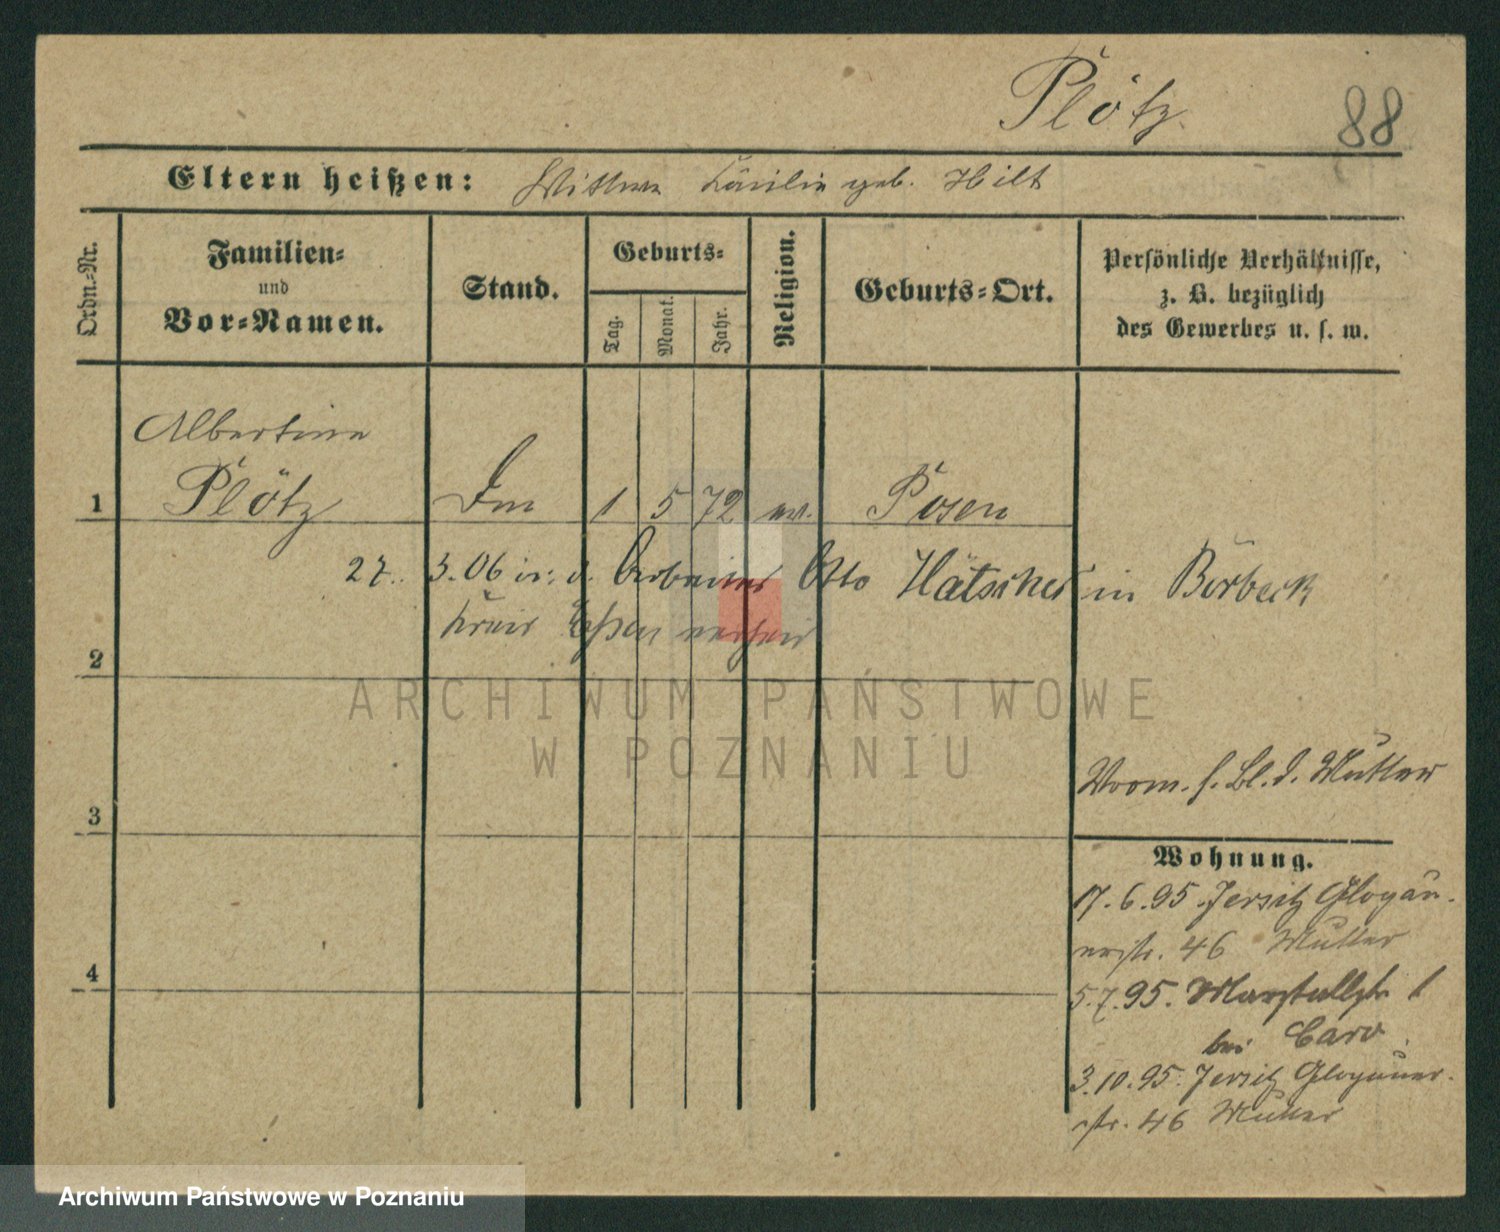 Plötz
88
Eltern heißen: Wittwe Cäcilie geb. Hilt
Ordn.-Nr.
Familien-
und
Vor-Namen.
Stand.
Geburts-
Tag.
Monat.
Jahr.
Religion.
Geburts-Ort.
Persönliche Verhältnisse,
z. B. bezüglich
des Gewerbes u. s. w.
Albertine
1 Plötz 1 5 72 ev. Posen
27. 3.06 in: d. Arbeiter Otto Hätscher in Borbeck
Kreis Essen verheir
2
3
4
ARCHIWUM PAŃSTWOWE
W POZNANIU
Vorm. s. Bl. d. Mutter
Wohnung.
17.6.95. Jersitz Glogau-
erstr. 46 Mutter
5.7.95. Marstallstr 1
bei Caro
3.10.95. Jersitz Glogauer-
str. 46 Mutter
Archiwum Państwowe w Poznaniu